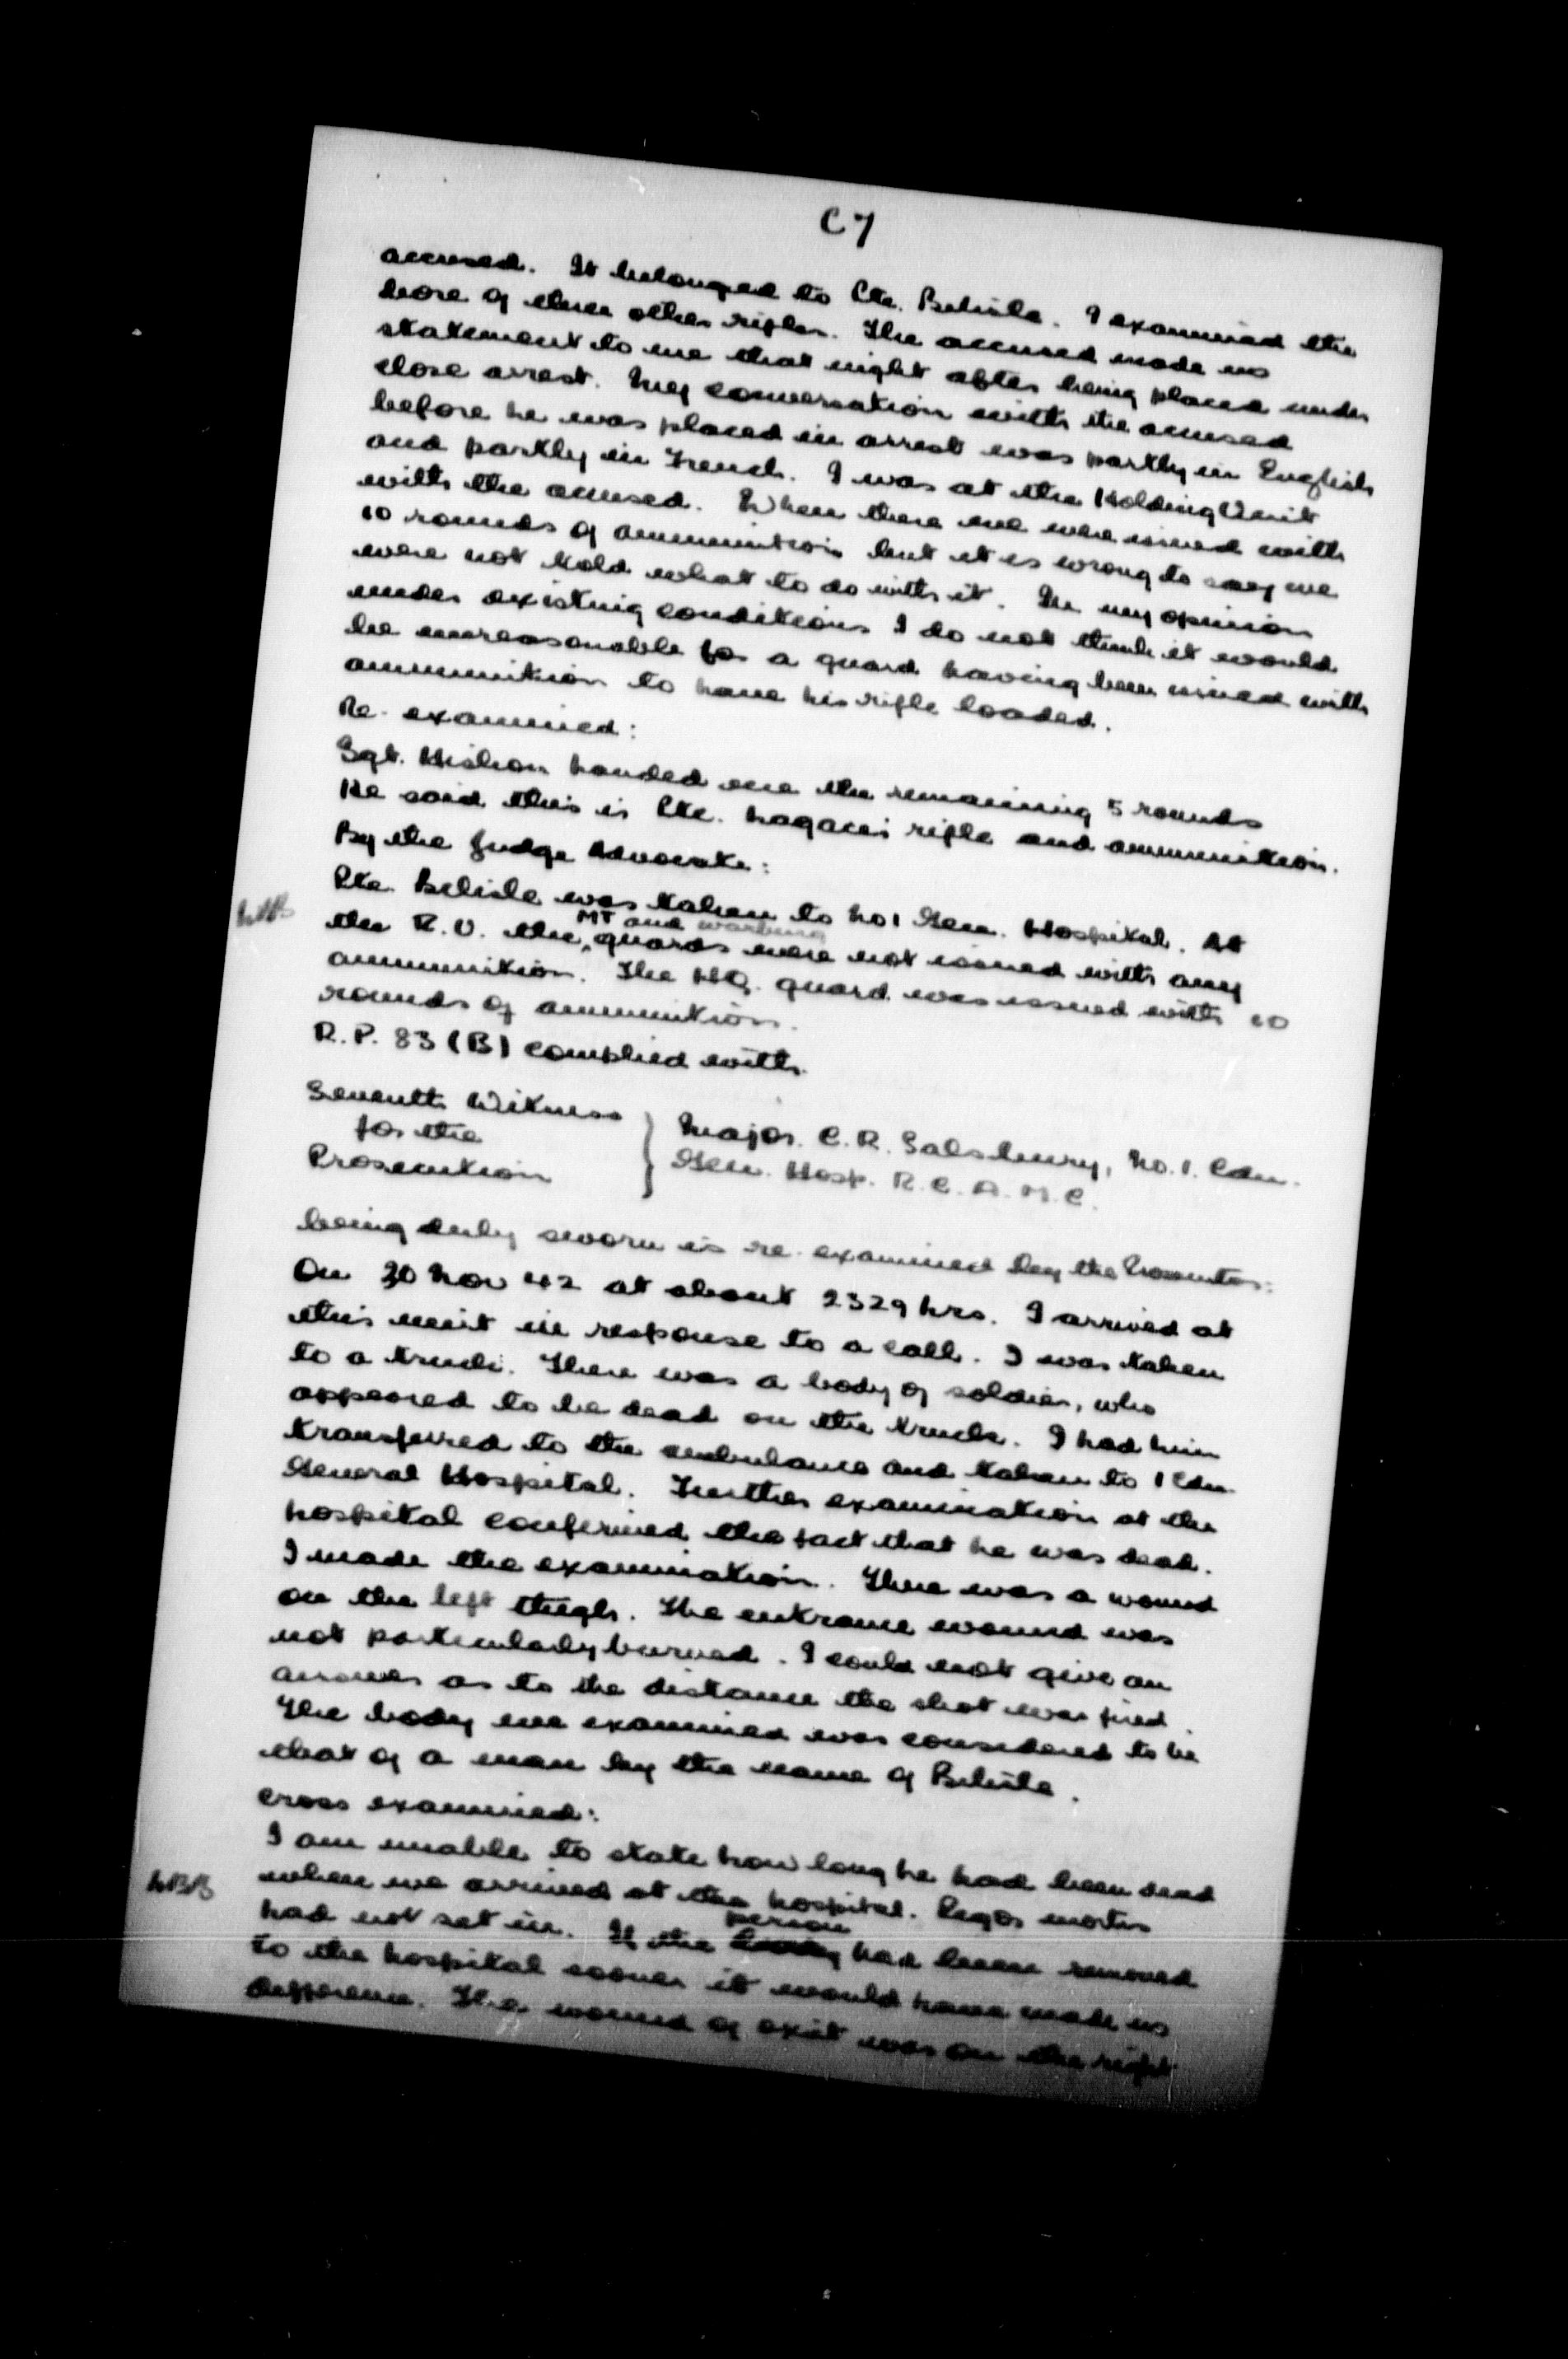 C7
accused. It belonged to Pte. Belisle. I examined the
bore of three other rifles. The accused made no
statement to me that night after being placed under
close arrest. My conversation with the accused
before he was placed in arrest was partly in English
and partly in French. I was at the Holding Unit
with the accused. When there we were issued with
10 rounds of ammunition but it is wrong to say we
were not told what to do with it. In my opinion
under existing conditions I do not think it would
be unreasonable for a guard having been issued with
ammunition to have his rifle loaded.
Re-examined:
Sgt. handed me the remaining 5 rounds
He said this is Pte. Lagace's rifle and ammunition.
By the Judge Advocate:
Pte. Belisle was taken to No 1 Gen. Hospital. At
MT and
the R.U. the guards were not issued with any
ammunition. The HQ. guard was issued with 10
rounds of ammunition.
R.P. 83 (B) complied with.
Seventh Witness
for the
Prosecution
Major. C.R. Salsbury, No. 1. Cdn.
Gen. Hosp. R.C.A.M.C.
being duly sworn is re-examined by the Prosecutor:
On 30 Nov 42 at about 2329 hrs. I arrived at
this unit in response to a call. I was taken
to a truck. There was a body of soldier, who
appeared to be dead on the truck. I had him
transferred to the ambulance and taken to 1 Cdn.
General Hospital. Further examination at the
hospital confirmed the fact that he was dead.
I made the examination. There was a wound
on the left thigh. The entrance wound was
not particularly burned. I could not give an
answer as to the distance the shot was fired.
The body we examined was considered to be
that of a man by the name of Belisle.
Cross examined:
I am unable to state how long he had been dead
when we arrived at the hospital. Rigor mortis
person
had not set in. If the body had been removed
to the hospital sooner it would have made no
difference. The wound of exit was on the right